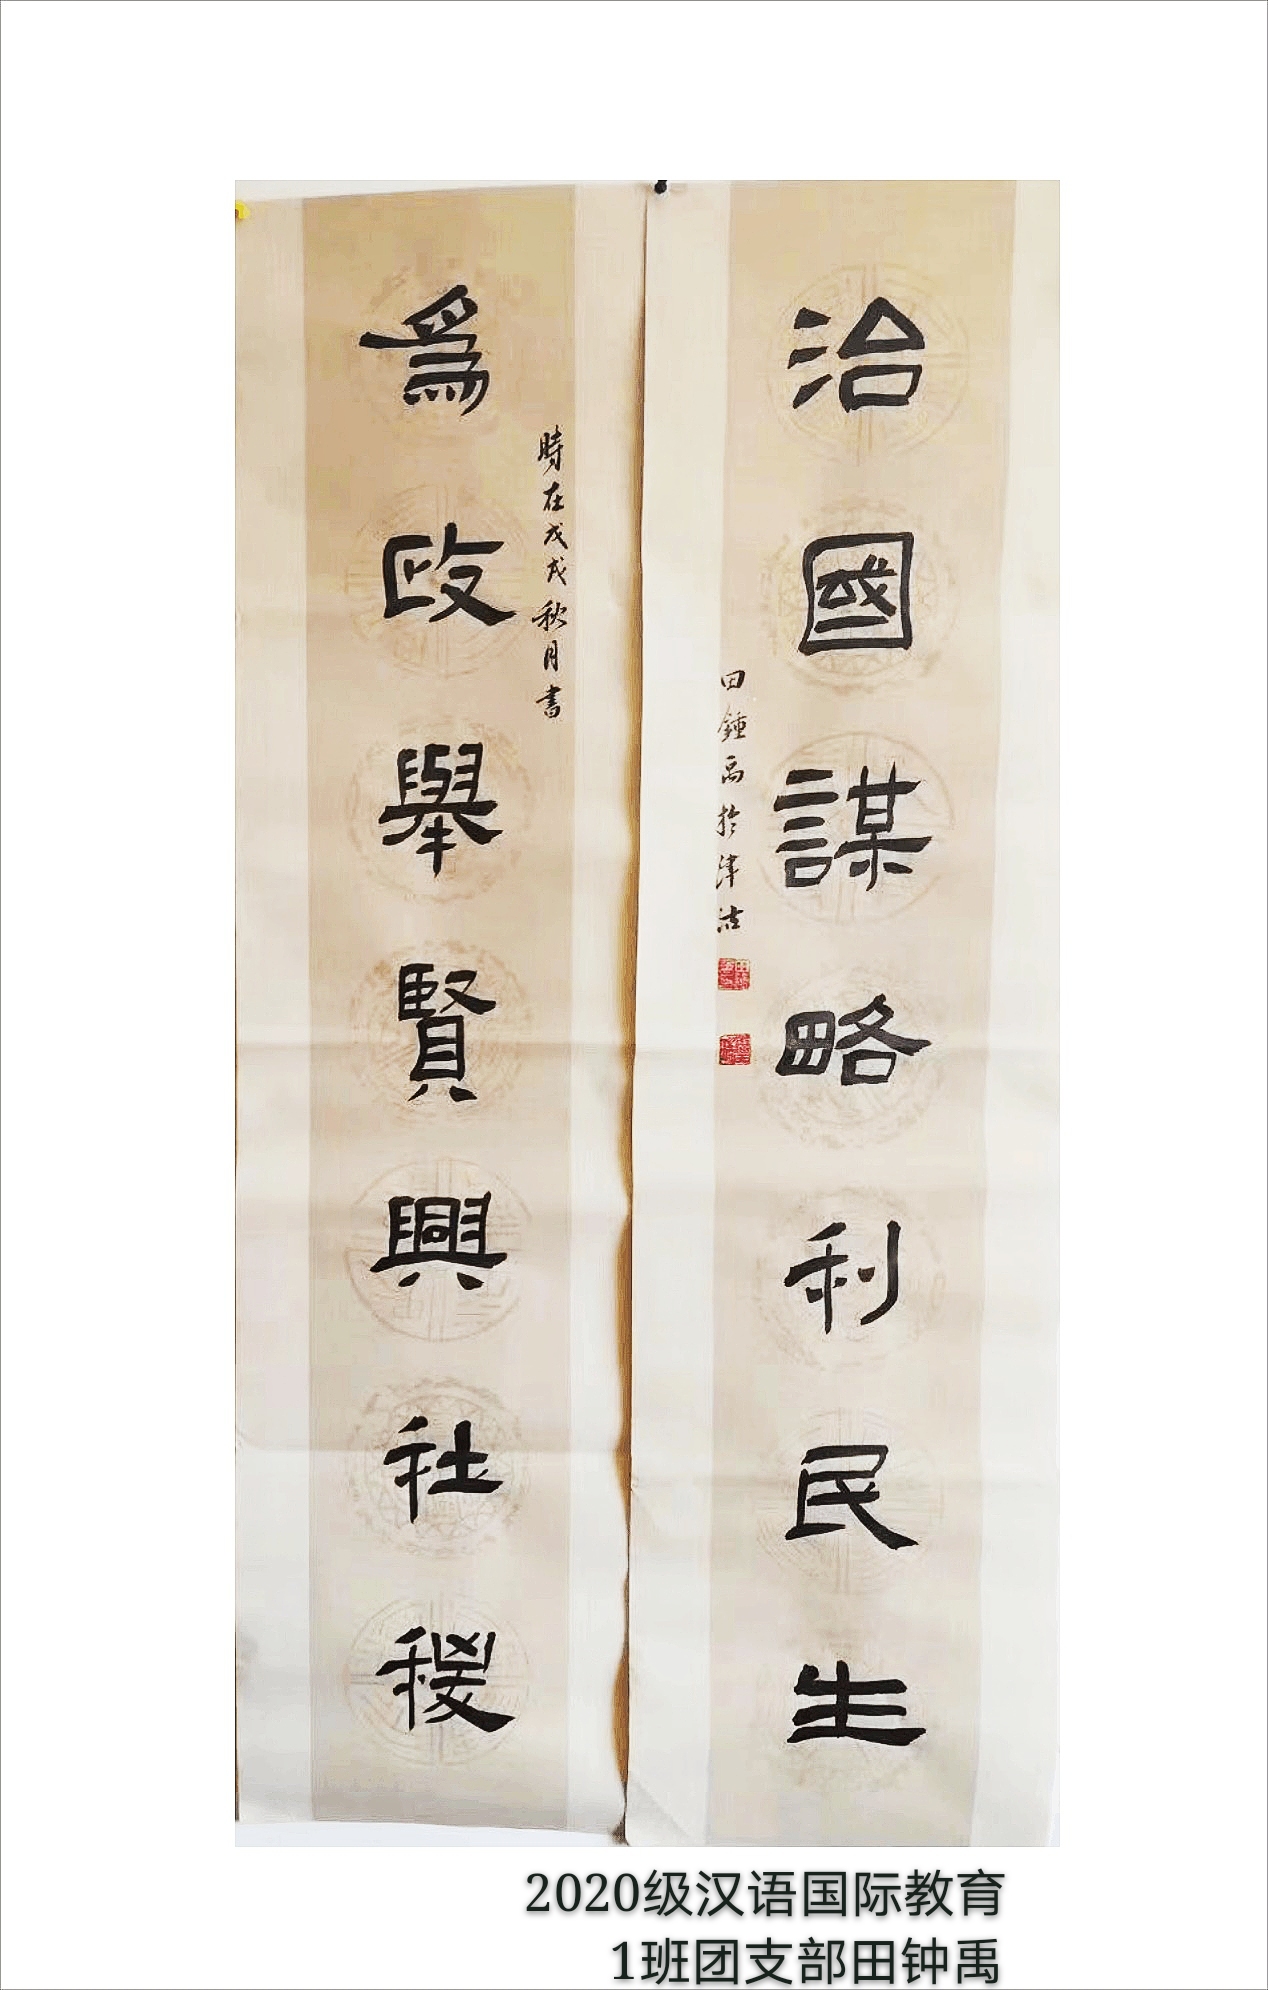 為政舉賢興社稷
時在戊戌秋月書
治國謀略利民生
田鍾禹於津沽
2020级汉语国际教育
1班团支部田钟禹